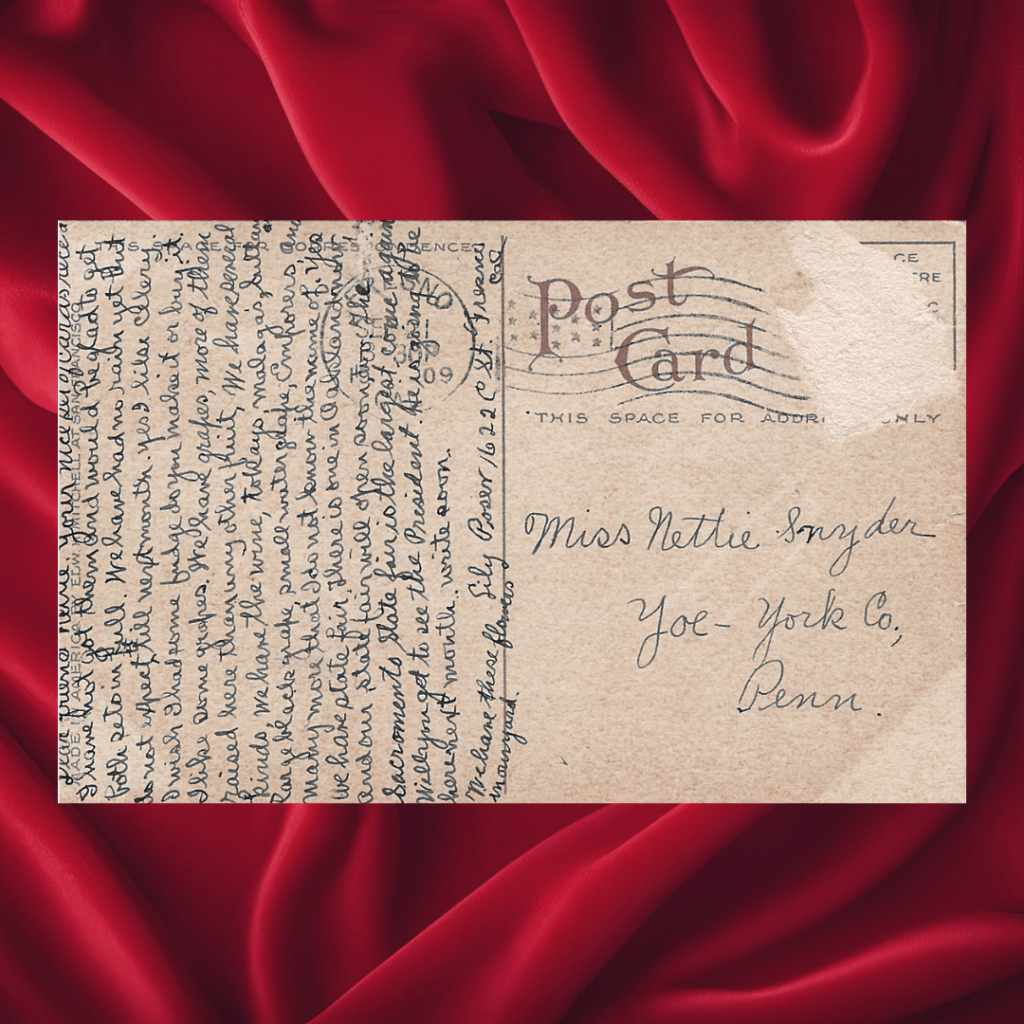 Dear friend Nettie Your nice set of cards rece'd
I have not got them and would be glad to get
both sets in full. We have had no rain yet but
do not expect till next month. yes I like celery.
I wish I had some fudge do you make it or buy it.
I like some grapes. We have grapes, more of them
raised here than any other fruit, We have several
kinds, We have the wine, tokays, malagas, sultan
large black grape small water grape, Emperors and
many more that I do not know the name of. Yes
we have state fair. There is one in Oakland now,
and our state fair will open soon, too. The
Sacramento State fair is the largest come again
Will you get to see the President. He is going to be
here next month. write soon.
Lily Poser 1622 C St. Fresno
Cal
We have these flowers
in our yard.
THIS SPACE FOR CORRESPONDENCE
MADE IN AMERICA BY EDW. MITCHELL AT SAN FRANCISCO
09
Post
Card
THIS SPACE FOR ADDR NLY
CE
RE
Miss Nettie Snyder
Yoe- York Co,
Penn.